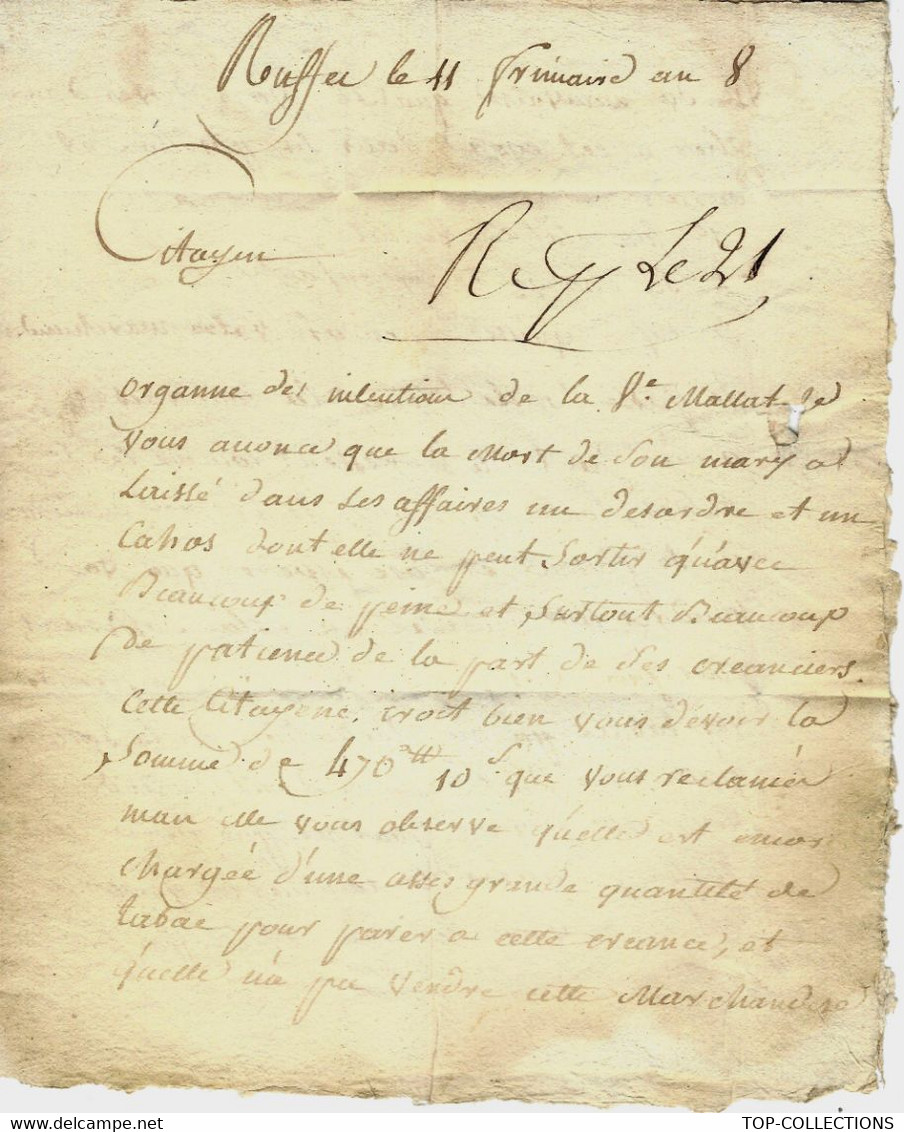 Ruffec le 11 frimaire an 8
Citoyen
Le 21
organne des intention de la Ve. Mallat je
vous anonce que la Mort de Son mary a
Laissé dans ses affaires un desordre et un
Cahos dont elle ne peut Sortir qu'avec
Beaucoup de peine et Surtout Beaucoup
De patience de la part de Ses creanciers.
Cette Citoyene, croit bien vous devoir la
Somme de 470 tt 10 s. que vous reclamés
mais elle vous observe qu'elle est encor
chargée d'une asses grande quantité de
tabac pour parer a cette creance, et
qu'elle n'a pu vendre cette Marchandise
TOP-COLLECTIONS